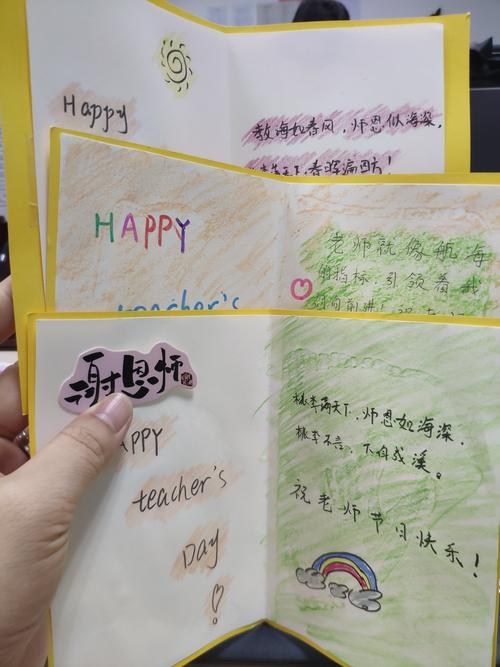 Happy
教诲如春风，师恩似海深，
春晖满四方！
HAPPY
teacher's
老师就像航海
的指标，引领着我
谢恩师
APPY
teacher's
Day
!
桃李满天下，师恩如海深，
桃李不言，下自成溪。
祝老师节日快乐！